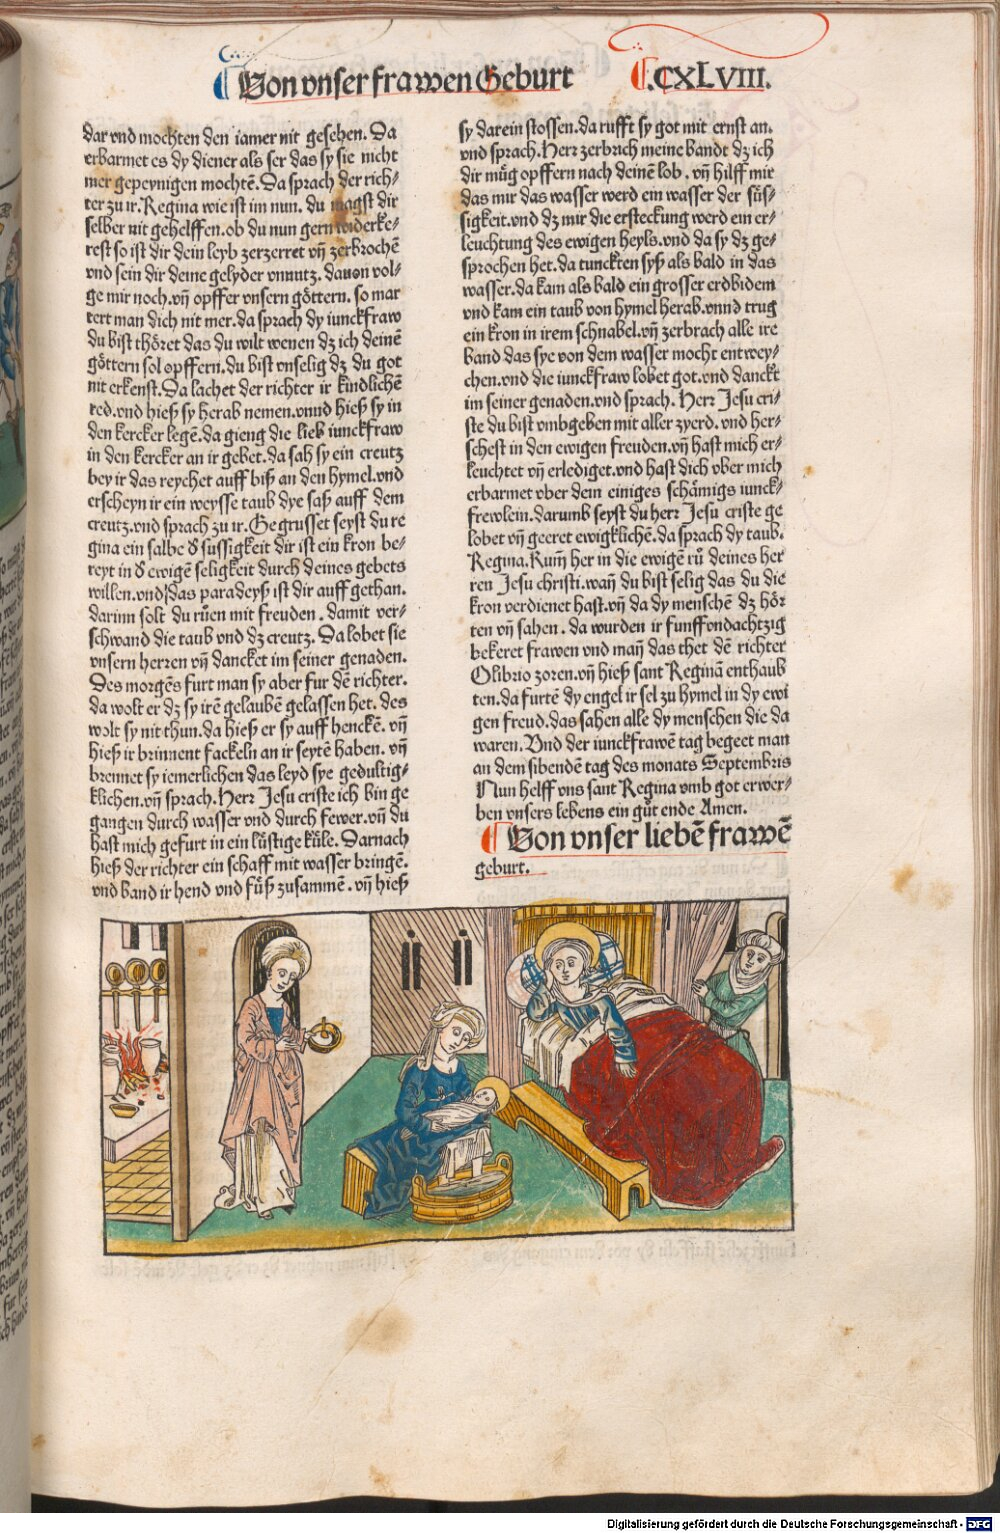 Von vnser frawen Geburt .CXLVIII.
dar vnd mochten den iamer nit gesehen. Da
erbarmet es dy diener als ser das sy sie nicht
mer gepeynigen mochtē. Da sprach der rich⸗
ter zu ir. Regina wie ist im nun. du magst dir
selber nit gehelffen. ob du nun gern widerke⸗
rest so ist dir dein leyb zerzerret vñ zerbrochē
vnd sein dir deine gelyder vnnutz. dauon vol⸗
ge mir noch. vñ opffer vnsern göttern. so mar
tert man dich nit mer. da sprach dy iunckfraw
du bist thöret das du wilt wenen dz ich deinē
göttern sol opffern. du bist vnselig dz du got
nit erkenst. Da lachet der richter ir kindlichē
red. vnd hieß sy herab nemen. vnnd hieß sy in
den kercker legē. da gieng die lieb iunckfraw
in den kercker an ir gebet. da sah sy ein creutz
bey ir das reychet auff biß an den hymel. vnd
erscheyn ir ein weysse taub dye saß auff dem
creutz. vnd sprach zu ir. Gegrusset seyst du re
gina ein salbe d̕ sussigkeit dir ist ein kron be⸗
reyt in d̕ ewigē seligkeit durch deines gebets
willen. vnd das paradeyß ist dir auff gethan.
darinn solt du růen mit freuden. damit ver⸗
schwand die taub vnd dz creutz. Da lobet sie
vnsern herren vñ dancket im seiner genaden.
Des morgēs furt man sy aber fur dē richter.
da wolt er dz sy irē gelaubē gelassen het. des
wolt sy nit thun. da hieß er sy auff henckē. vñ
hieß ir brinnent fackeln an ir seytē haben. vñ
brennet sy iemerlichen das leyd sye gedultig⸗
klichen. vñ sprach. Herr Jesu criste ich bin ge
gangen durch wasser vnd durch fewer. vñ du
hast mich gefurt in ein lůstige kůle. Darnach
hieß der richter ein schaff mit wasser bringē.
vnd band ir hend vnd fůß zusammē. vñ hieß
sy darein stossen. da rufft sy got mit ernst an.
vnd sprach. Herr zerbrich meine bandt dz ich
dir můg opffern nach deinē lob. vñ hilff mir
das mir das wasser werd ein wasser der sůs⸗
sigkeit. vnd dz mir die ersteckung werd ein er⸗
leuchtung des ewigen heyls. vnd da sy dz ge⸗
sprochen het. da tunckten syß als bald in das
wasser. da kam als bald ein grosser erdbidem
vnd kam ein taub von hymel herab. vnnd trug
ein kron in irem schnabel. vñ zerbrach alle ire
band das sye von dem wasser mocht entwey⸗
chen. vnd die iunckfraw lobet got. vnd danckt
im seiner genaden. vnd sprach. Herr Jesu cri⸗
ste du bist vmbgeben mit aller zyerd. vnd her⸗
schest in den ewigen freuden. vñ hast mich er⸗
leuchtet vñ erlediget. vnd hast dich vber mich
erbarmet vber dein einiges schämigs iunck⸗
frewlein. darumb seyst du herr Jesu criste ge
lobet vñ geeret ewigklichē. da sprach dy taub.
Regina. Kum̄ her in die ewigē rů deines her
ren Jesu christi. wañ du bist selig das du die
kron verdienet hast. vñ da dy menschē dz hör
ten vñ sahen. da wurden ir funffvndachtzig
bekeret frawen vnd mañ das thet dē richter
Olibrio zoren. vñ hieß sant Reginā enthaub
ten. da furtē dy engel ir sel zu hymel in dy ewi
gen freud. das sahen alle dy menschen die da
waren. Vnd der iunckfrawē tag begeet man
an dem sibendē tag des monats Septembris
Nun helff vns sant Regina vmb got erwer⸗
ben vnsers lebens ein gůt ende Amen.
Von vnser liebē frawē
geburt.
Digitalisierung gefördert durch die Deutsche Forschungsgemeinschaft - DFG